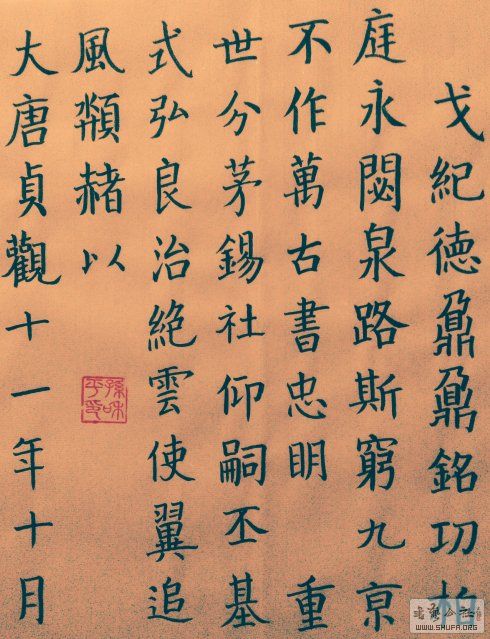 戈紀德鼐鼐銘功柏
庭永閟泉路斯窮九亰
不作萬古書忠眀 重
世分茅錫社仰嗣丕基
式弘良治絶雲使翼追
風赭以
大唐貞觀十一年十月
WWW.SHUFA.ORG